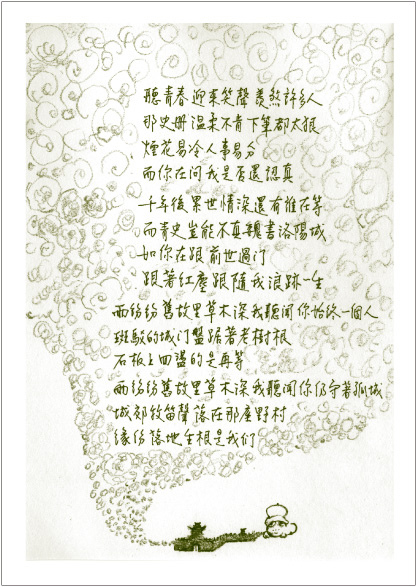 聽青春迎來笑聲羨煞許多人
那史冊溫柔不肯下筆都太狠
煙花易冷人事易分
而你在問我是否還認真
千年後累世情深還有誰在等
而青史豈能不真魏書洛陽城
如你在跟前世過門
跟著紅塵跟隨我浪跡一生
雨紛紛舊故里草木深我聽聞你始終一個人
斑駁的城門盤踞著老樹根
石板上回盪的是再等
雨紛紛舊故里草木深我聽聞你仍守著孤城
城郊牧笛聲落在那座野村
緣份落地生根是我們